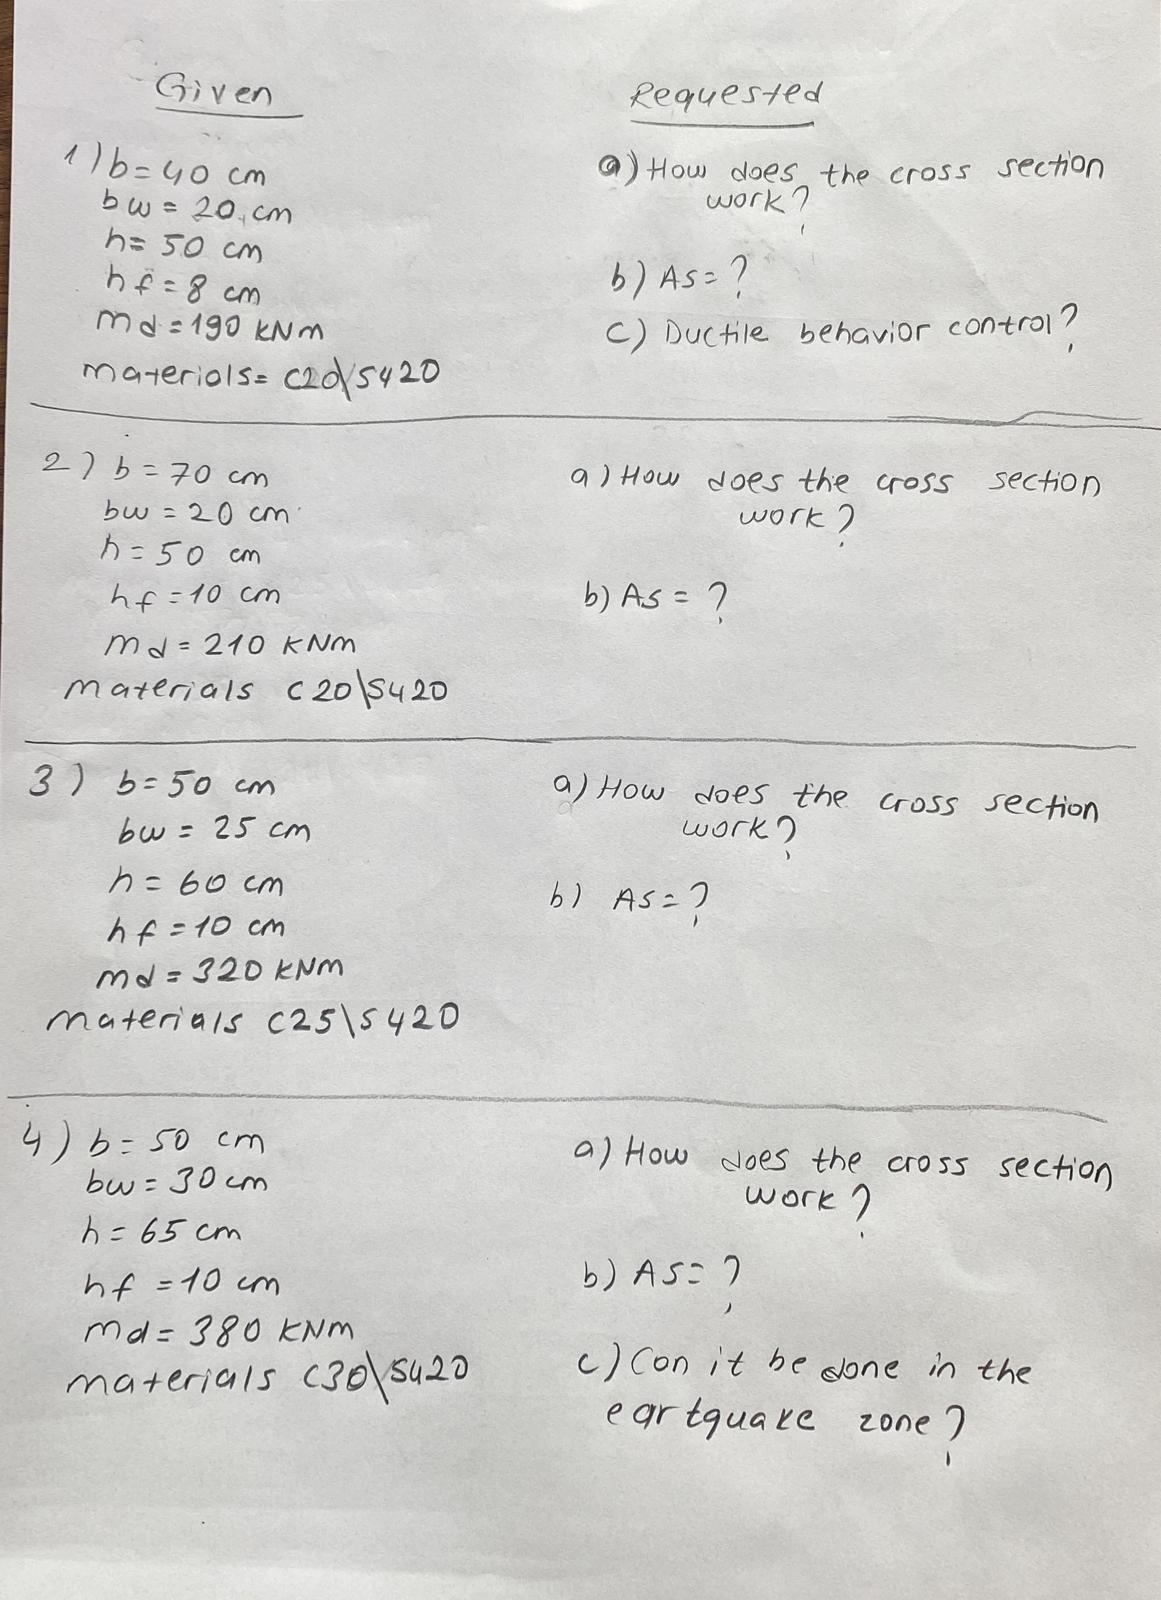 Given
Requested
1) b = 40 cm
bw = 20 cm
h = 50 cm
hf = 8 cm
md = 190 kNm
materials = C20\S420
a) How does the cross section
work?
b) As = ?
c) Ductile behavior control?
2) b = 70 cm
bw = 20 cm
h = 50 cm
hf = 10 cm
md = 210 kNm
materials C20\S420
a) How does the cross section
work?
b) As = ?
3) b = 50 cm
bw = 25 cm
h = 60 cm
hf = 10 cm
md = 320 kNm
materials C25\S420
a) How does the cross section
work?
b) As = ?
4) b = 50 cm
bw = 30 cm
h = 65 cm
hf = 10 cm
md = 380 kNm
materials C30\S420
a) How does the cross section
work?
b) As = ?
c) Con it be done in the
eartquake zone?